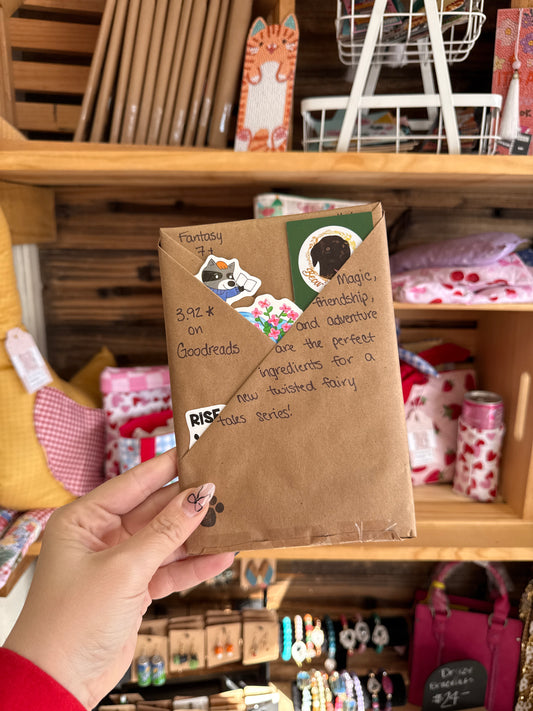 Fantasy
7+
3.92 *
on
Goodreads
Magic,
friendship,
and adventure
are the perfect
ingredients for a
new twisted fairy
tales series!
RISE
BEADED
BRACELETS
$24-